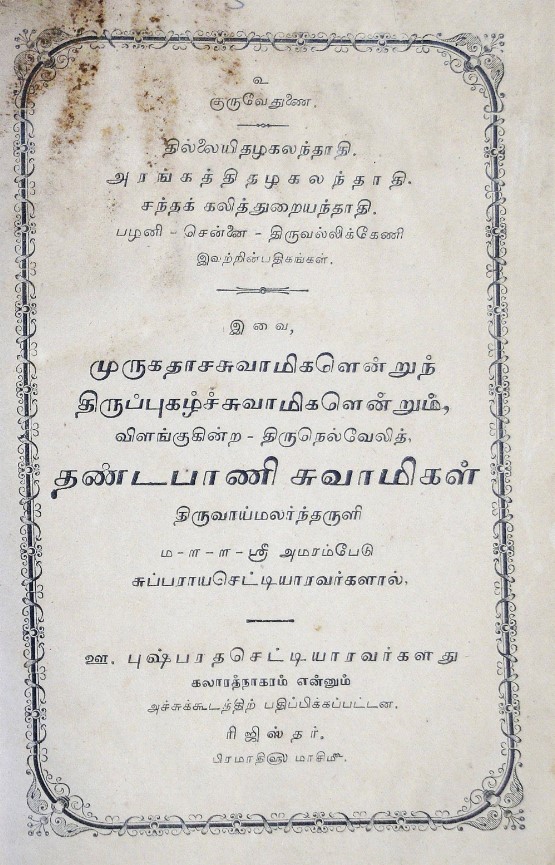 உ
குருவேதுணை.
தில்லையிதழகலந்தாதி.
அரங்கத்திதழகலந்தாதி.
சந்தக் கலித்துறையந்தாதி.
பழனி - சென்னை - திருவல்லிக்கேணி
இவற்றின்பதிகங்கள்.
இவை,
முருகதாசசுவாமிகளென்றுந்
திருப்புகழ்ச்சுவாமிகளென்றும்,
விளங்குகின்ற - திருநெல்வேலித்,
தண்டபாணி சுவாமிகள்
திருவாய்மலர்ந்தருளி
ம-ள-ள-ஸ்ரீ அமரம்பேடு
சுப்பராயசெட்டியாரவர்களால்,
ஊ. புஷ்பரதசெட்டியாரவர்களது
கலாரத்நாகரம் என்னும்
அச்சுக்கூடத்திற் பதிப்பிக்கப்பட்டன.
ரிஜிஸ்தர்.
பிரமாதி௵ மாசி௴.